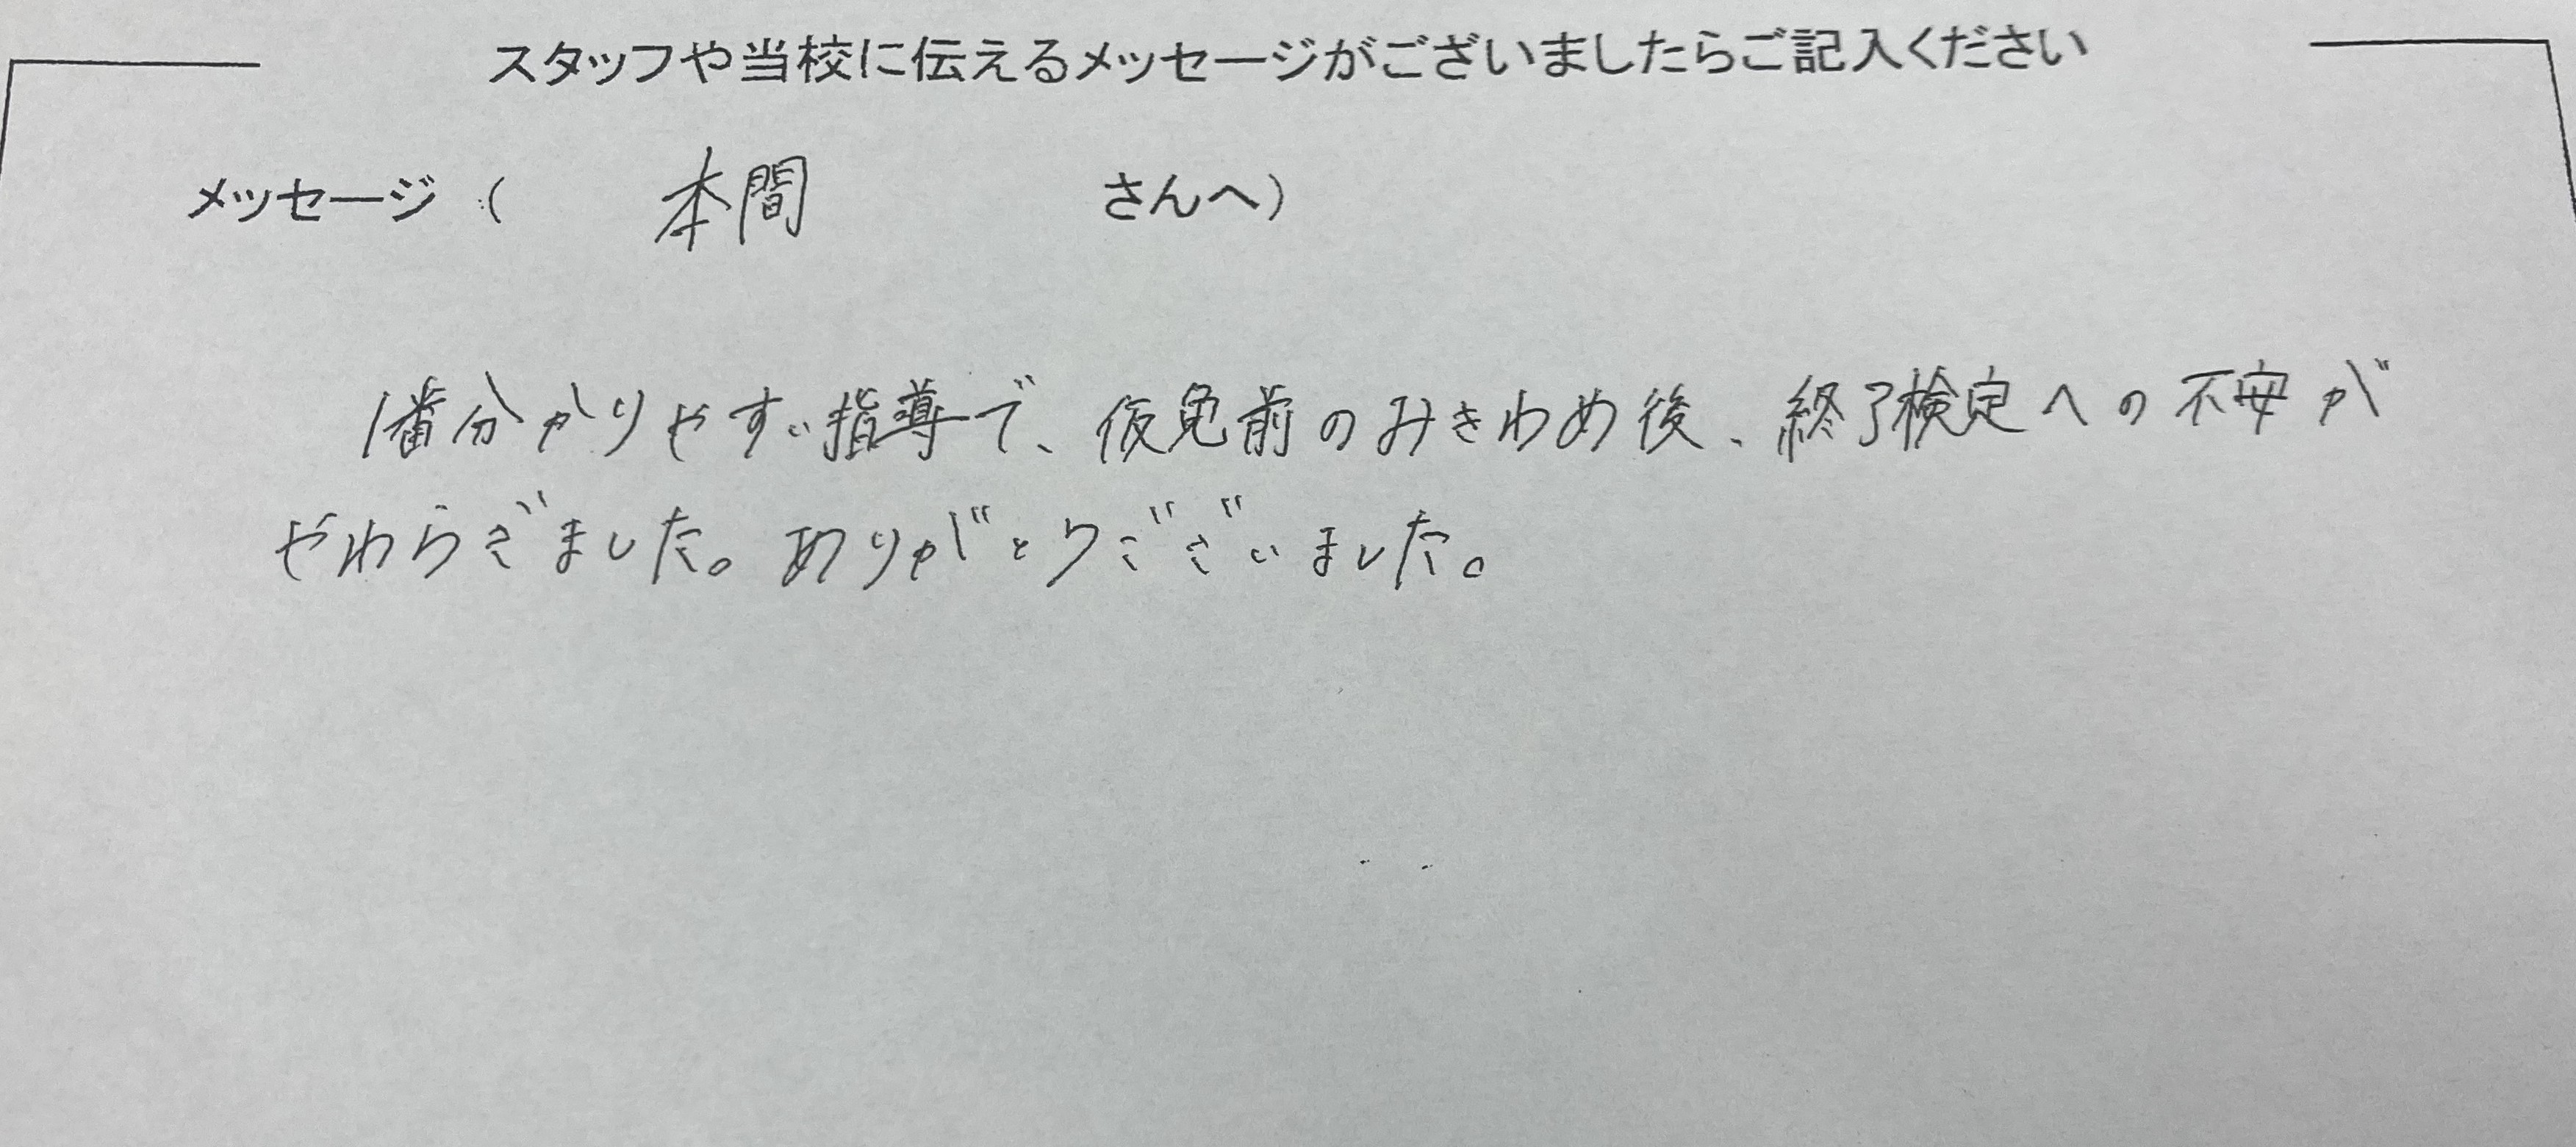 スタッフや当校に伝えるメッセージがございましたらご記入ください
メッセージ（ 本間 さんへ）
1番分かりやすい指導で、仮免前のみきわめ後、終了検定への不安が
やわらぎました。ありがとうございました。